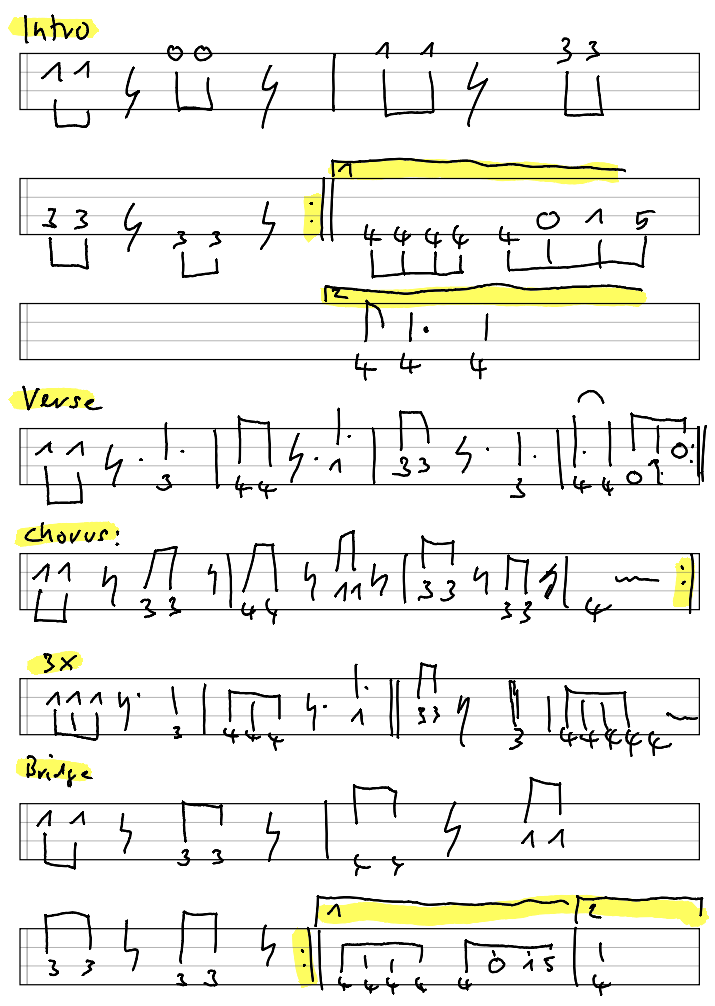 Intro
1 1 0 0 1 1 3 3
1
3 3 3 3 4 4 4 4 4 0 1 5
2
4 4 4
Verse
1 1 3 4 4 1 3 3 3 4 4 0 1 0
Chorus:
1 1 3 3 4 4 1 1 3 3 3 3 4
3x
1 1 1 3 4 4 4 1 3 3 3 4 4 4 4 4
Bridge
1 1 3 3 4 4 1 1
1 2
3 3 3 3 4 4 4 4 4 0 1 5 4